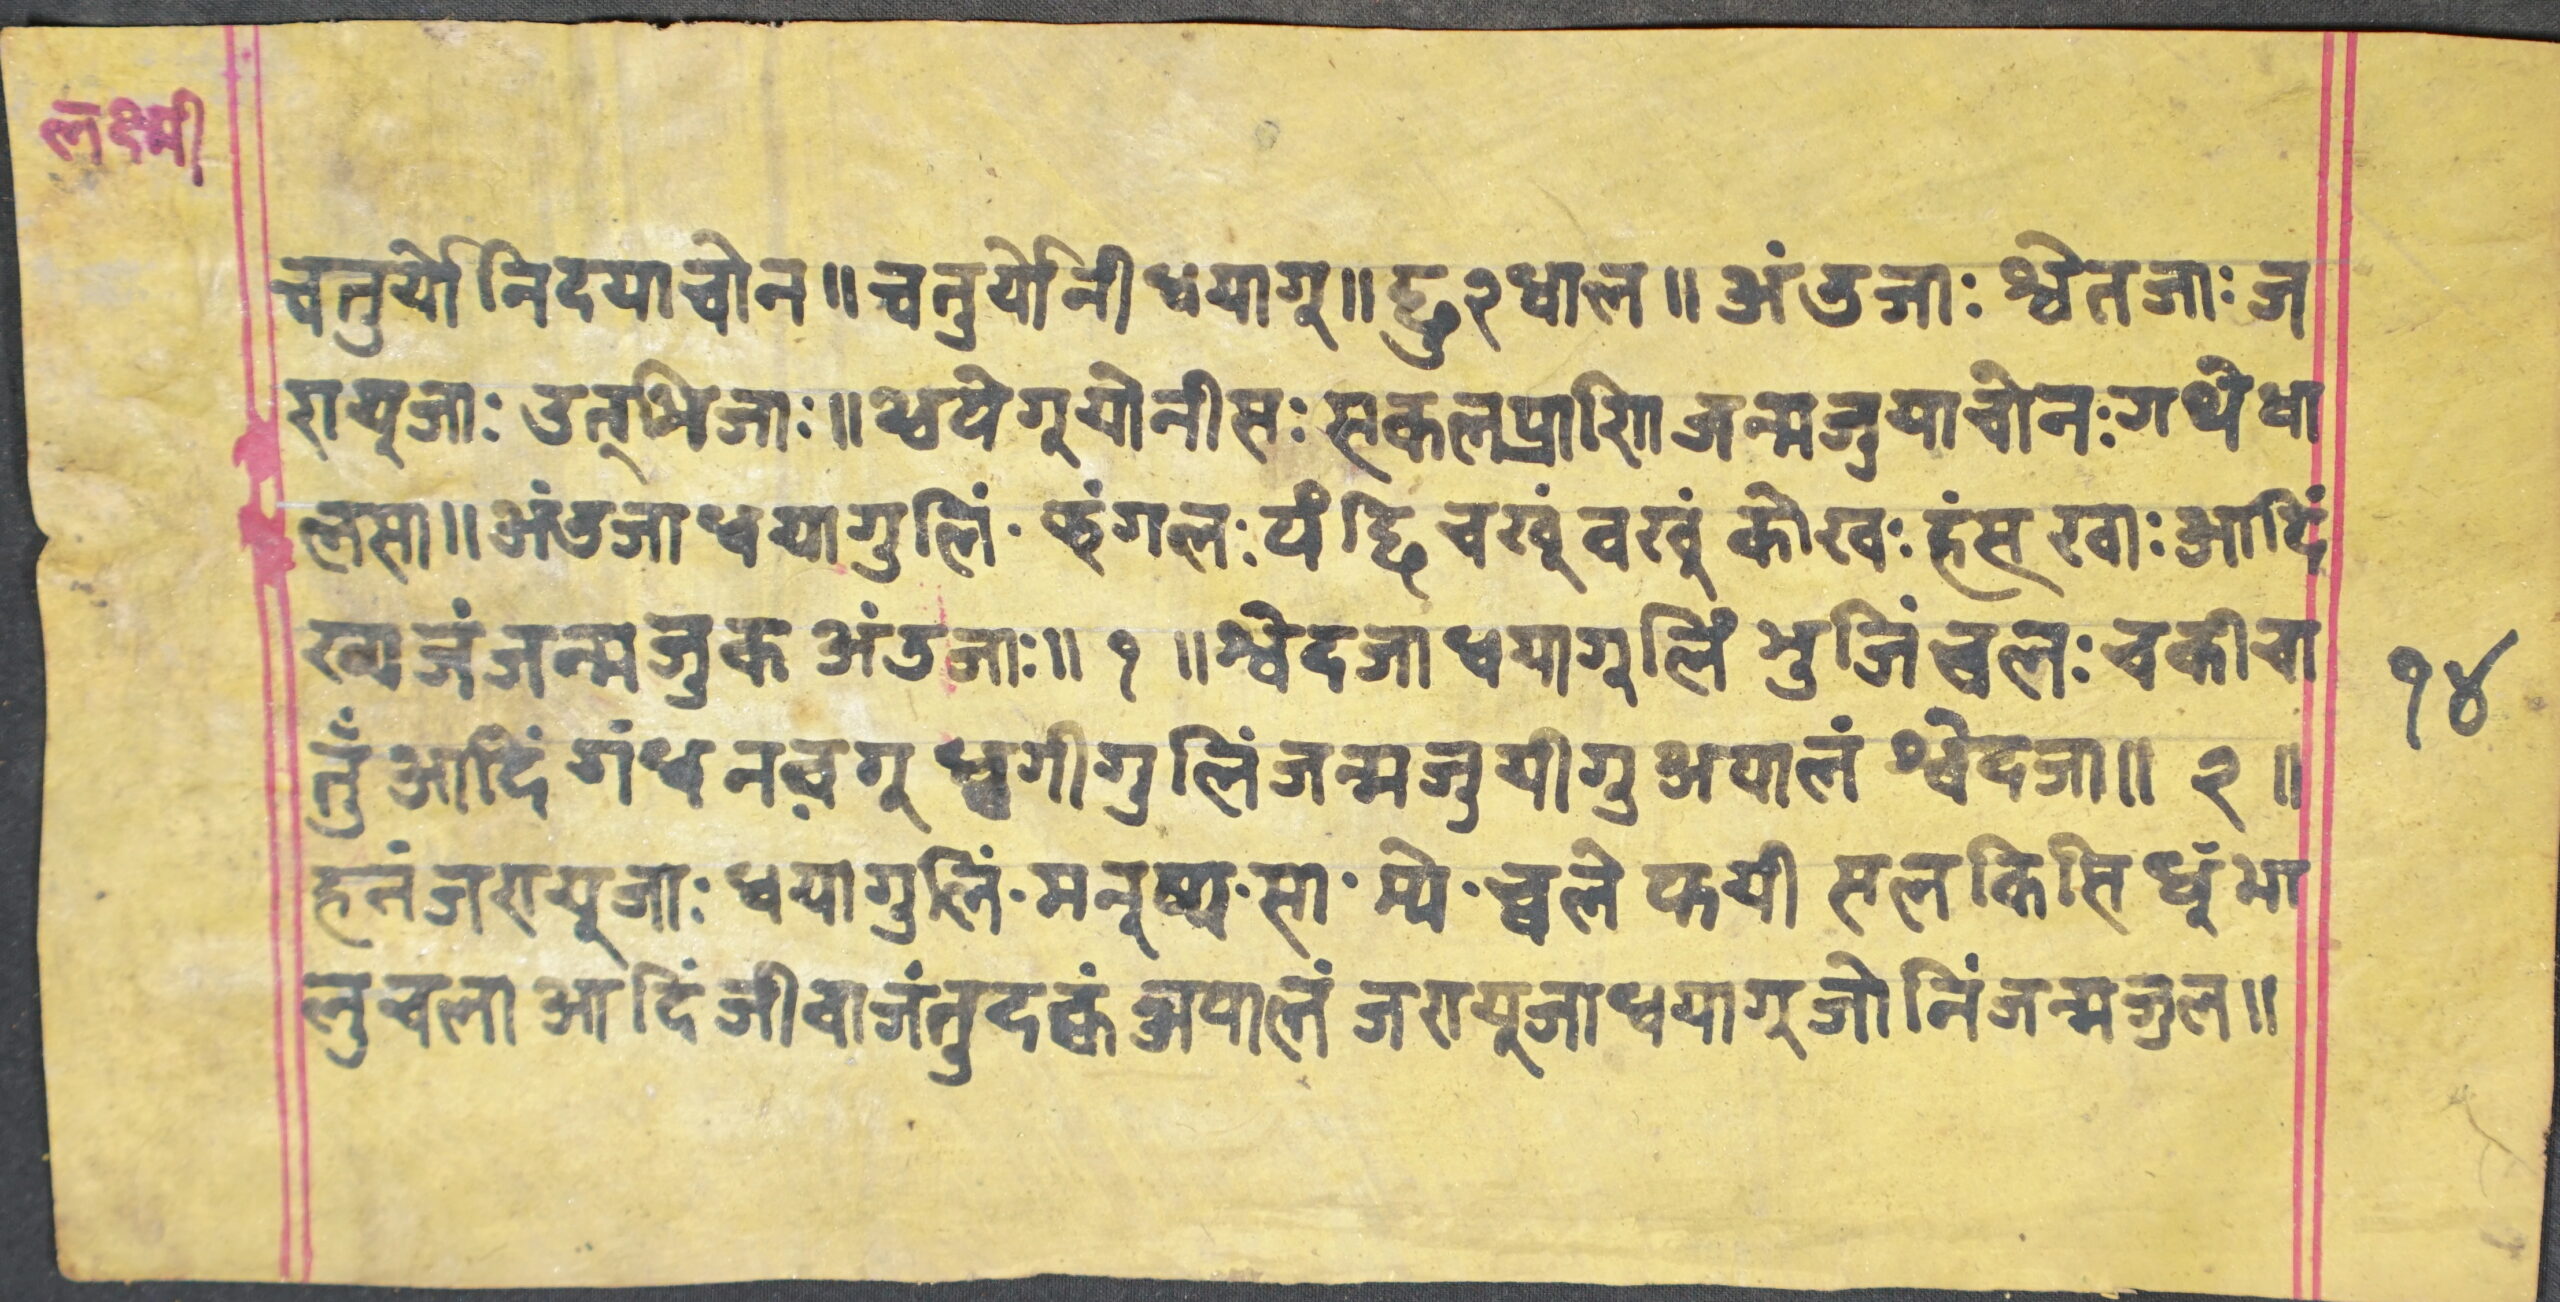 लक्ष्मी
चतुर्योनिदयाचोन॥ चतुर्योनी धयागू॥ छु२धाल॥ अंडजाः श्वेतजाः ज
रायूजाः उत्भिजाः॥ थ्वपेगूयोनीसः सकलप्राणि जन्मजुयाचोनः गथेधा
लसा॥ अंडजा धयागुलिं· झंगलः पंछि चखुं वखुं कोखः हंस खाः आदिं
ख्यजं जन्मजुक अंडजाः॥ १ ॥ श्वेदजा धयागूलिं भुजिं चलः चकीचा
तुँ आदिं गंध नवगू ध्वगीगुलिं जन्मजुयीगु अपालं श्वेदजा॥ २ ॥
हनं जरायूजाः धयागुलिं· मनूष्य·सा· म्ये·च्वले फयी सल किसि धुं भा
लु चला आदिं जीवाजंतु दक्वं अपालं जरायूजाधयागू जोनिं जन्मजुल॥
१४